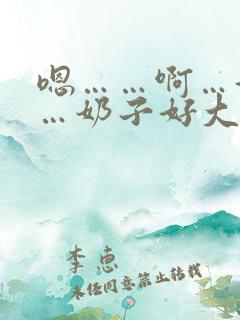 嗯……啊…
…奶子好大
李惠
未经同意禁止转载